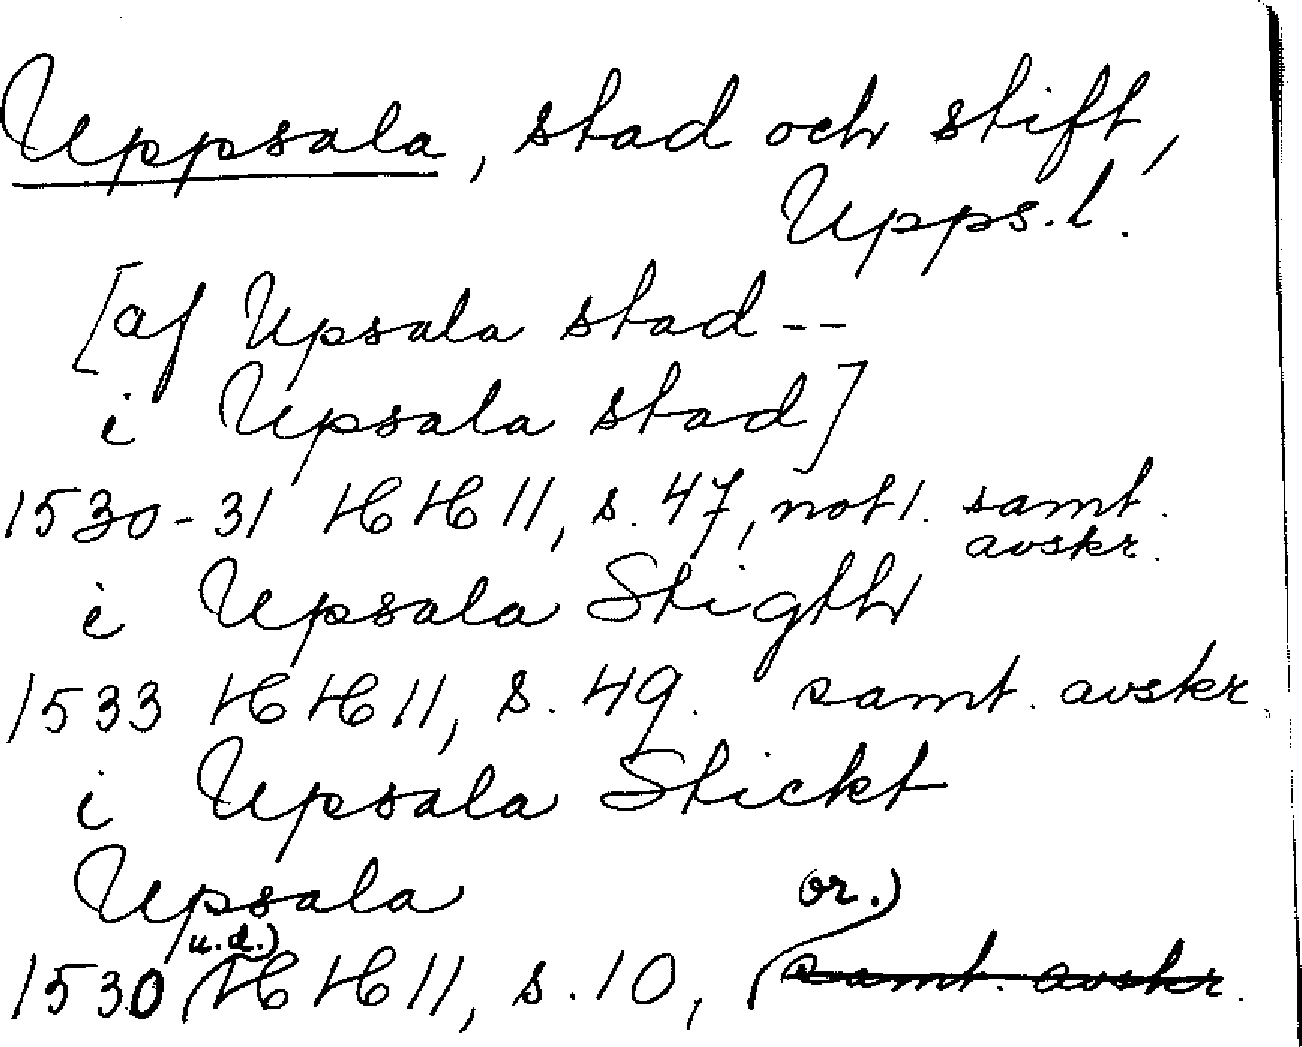 Uppsala, stad och stift,
Upps.l.
[af Upsala stad--
i Upsala stad]
1530-31 HH 11, s. 47, not 1. samt.
avskr.
i Upsala Stigth
1533 HH 11, s. 49. samt. avskr.
i Upsala Stickt
Upsala
or.)
u.d.)
1530 HH 11, s. 10, samt. avskr.